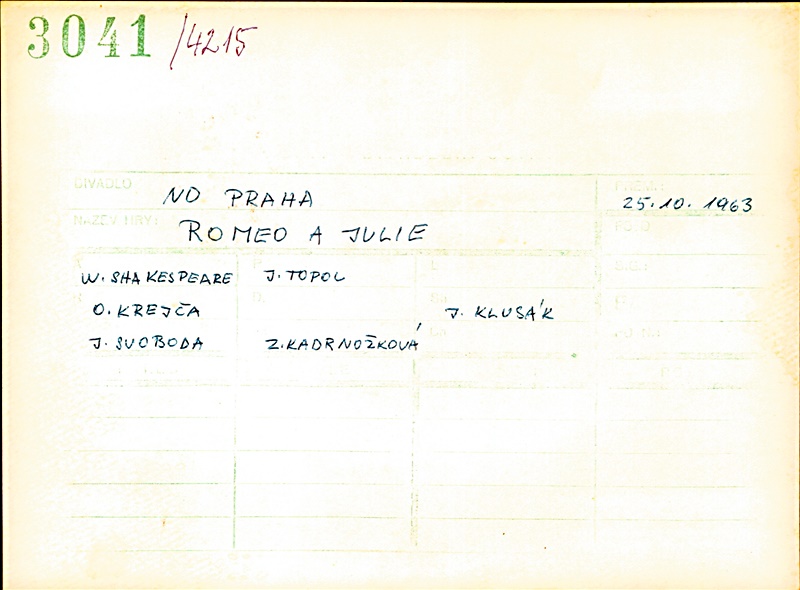 3041 /4215
DIVADLO NO PRAHA 25.10.1963
NÁZEV HRY: ROMEO A JULIE
W. SHAKESPEARE J. TOPOL
O. KREJČA J. KLUSÁK
J. SVOBODA Z. KADRNOŽKOVÁ